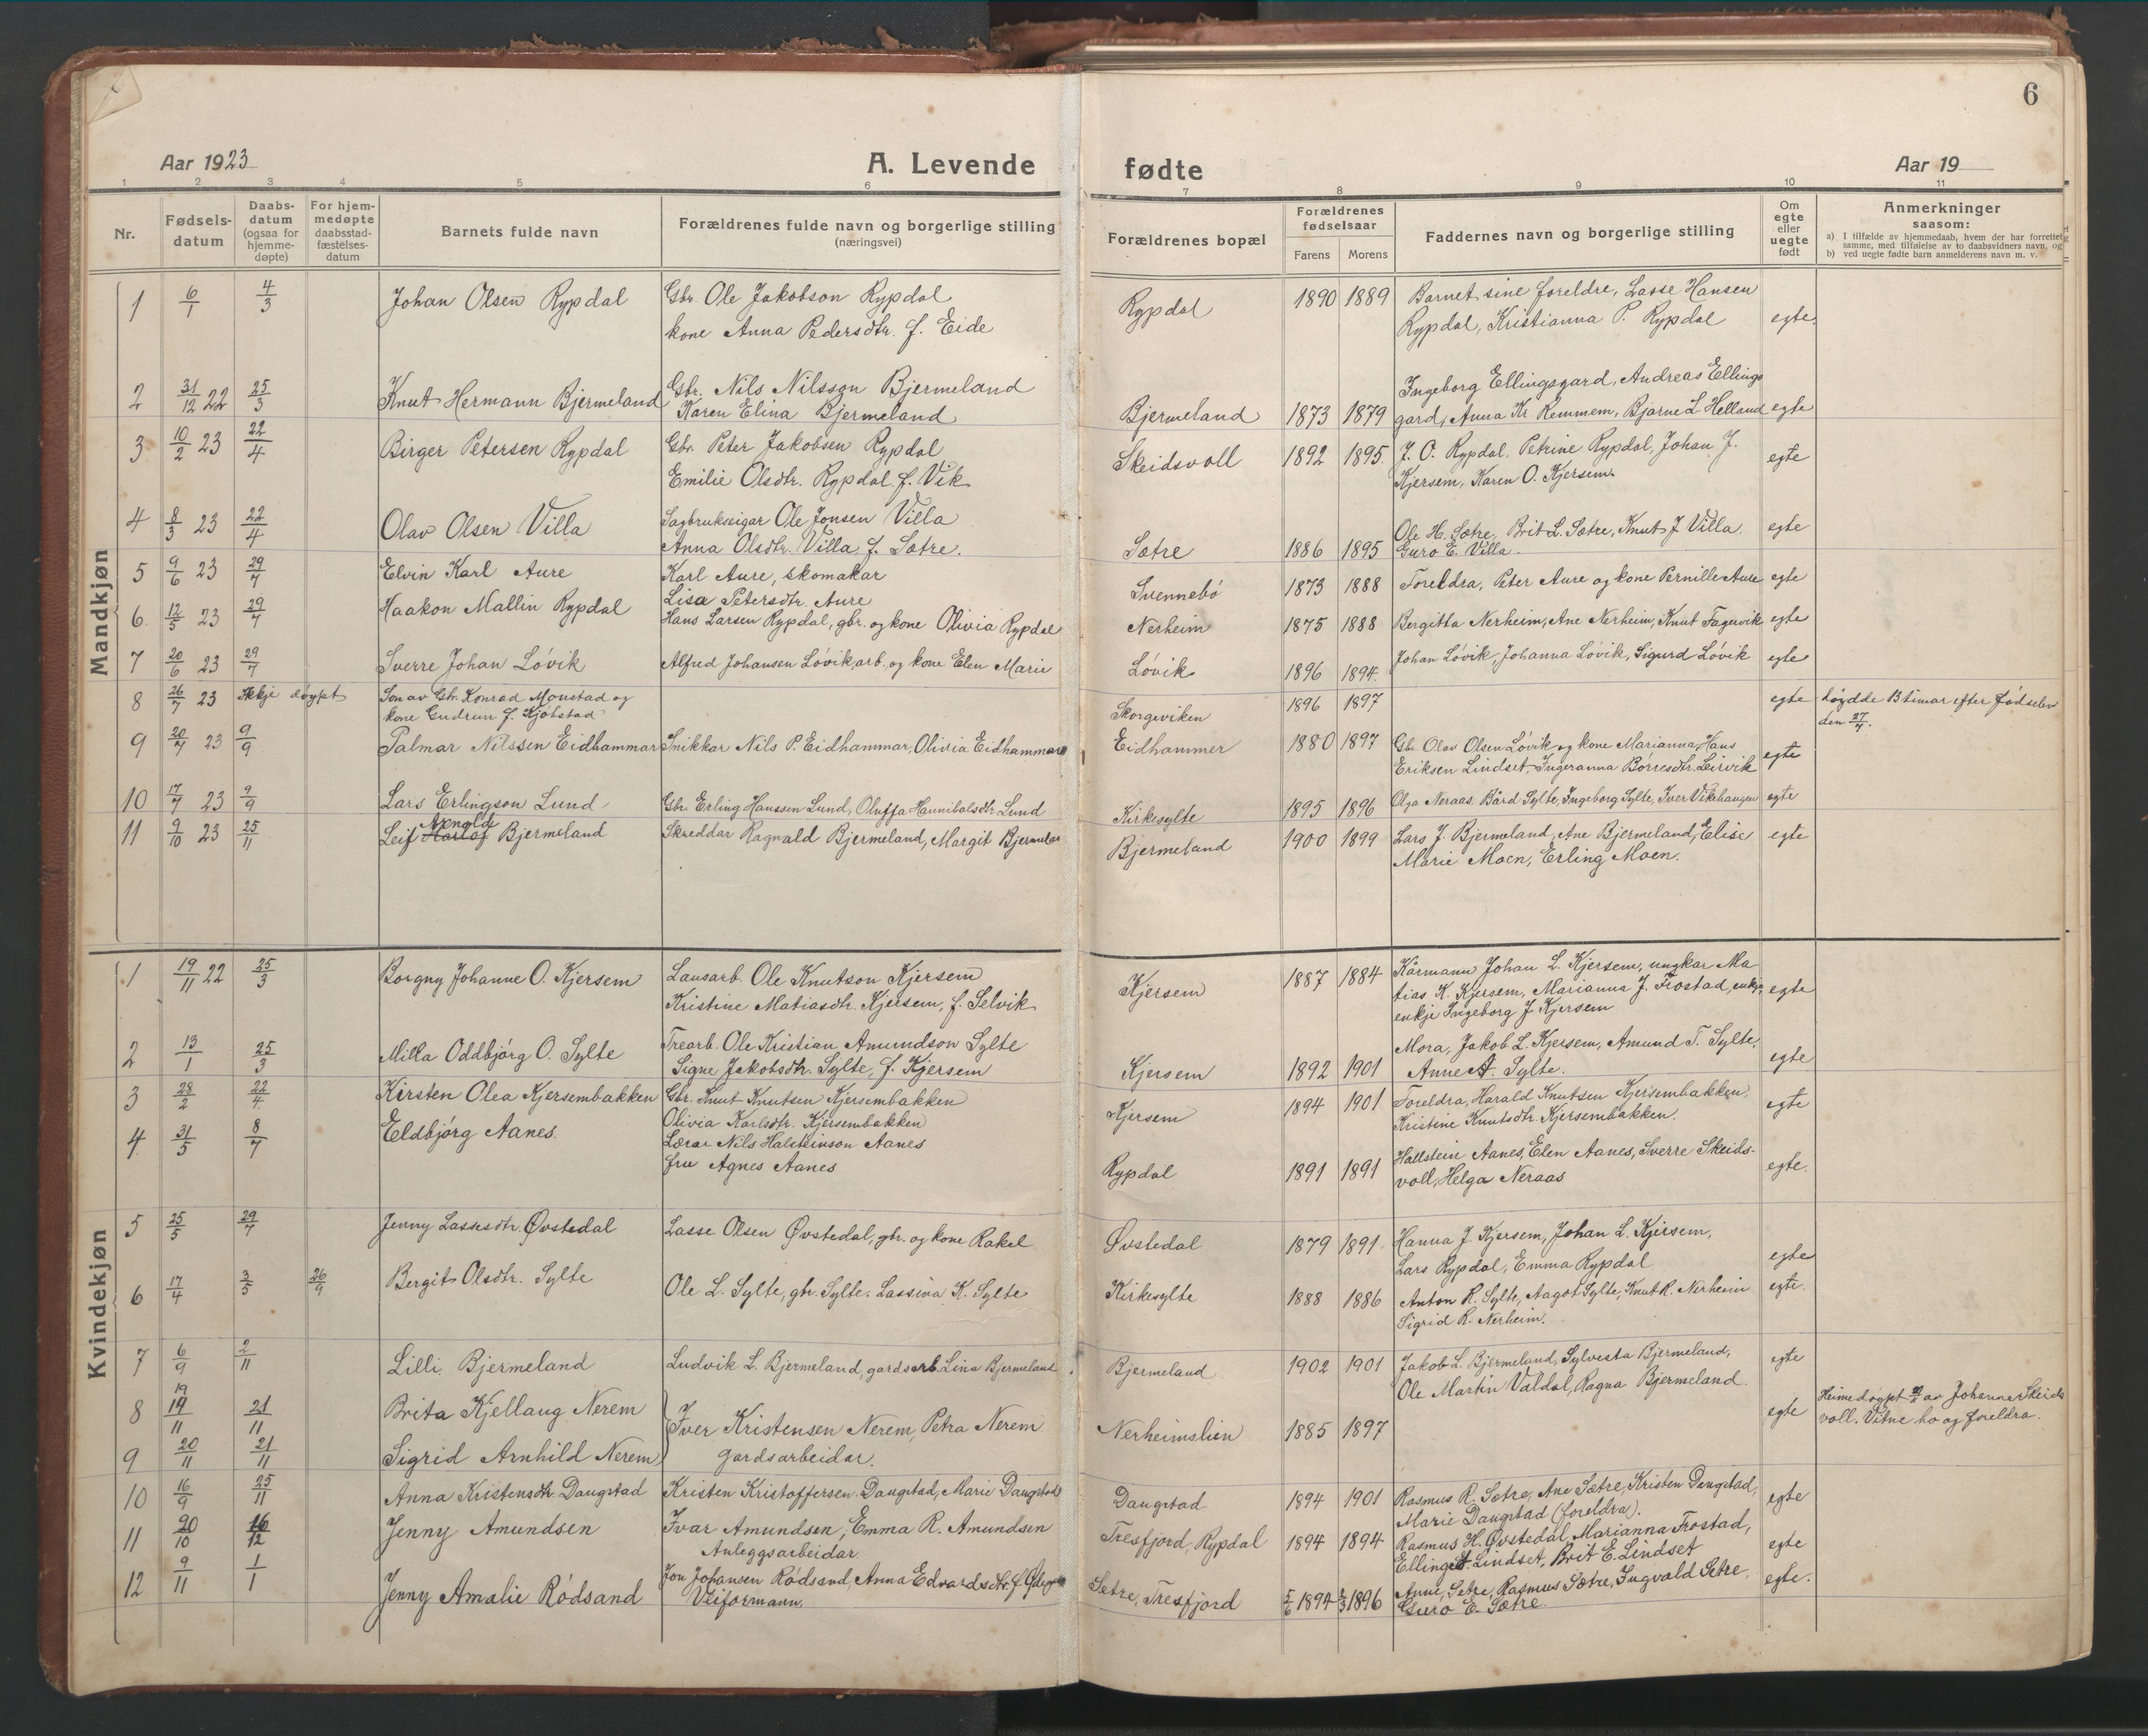 6
Aar 1923
A. Levende
fødte
Aar 19
1 2 3 4 5 6 7 8 9 10 11
Nr.
Fødsels-
datum
Daabs-
datum
(ogsaa for
hjemme-
døpte)
For hjem-
medøpte
daabsstad-
fæstelses-
datum
Barnets fulde navn
Forældrenes fulde navn og borgerlige stilling
(næringsvei)
Forældrenes bopæl
Forældrenes
fødselsaar
Farens Morens
Faddernes navn og borgerlige stilling
Om
egte
eller
uegte
født
Anmerkninger
saasom:
a) I tilfælde av hjemmedaab, hvem der har forrettet
samme, med tilføielse av to daabsvidners navn, og
b) ved uegte fødte barn anmelderens navn m. v.
Mandkjøn
1 6/1 4/3 Johan Olsen Rypdal Gbr. Ole Jakobson Rypdal Rypdal 1890 1889 Barnet sine foreldre, Lasse Hansen egte.
kone Anna Pedersdtr. f. Eide Rypdal, Kristianna P. Rypdal
2 31/12 22 25/3 Knut Hermann Bjermeland Gbr. Nils Nilsson Bjermeland Bjermeland 1873 1879 Ingeborg Ellingsgard, Andreas Ellings
Karen Elina Bjermeland gard, Anna Kr. Remmem, Bjarne L. Helland egte
3 10/2 23 22/4 Birger Petersen Rypdal Gbr. Peter Jakobsen Rypdal Skeidsvoll 1892 1895 J. O. Rypdal, Petrine Rypdal, Johan J. egte
Emilie Olsdtr. Rypdal f. Vik Kjersem, Karen O. Kjersem.
4 8/3 23 22/4 Olav Olsen Villa Sagbrukseigar Ole Jonsen Villa Sætre 1886 1895 Ole H. Sætre, Brit L. Sætre, Knut J Villa. egte
Anna Olsdtr. Villa f. Sætre. Guro E. Villa.
5 9/6 23 29/7 Elvin Karl Aure Karl Aure, skomakar Svennebö 1873 1888 Foreldra, Peter Aure og kone Pernille Aure egte
Lisa Petersdtr. Aure
6. 12/5 23 29/7 Haakon Mallin Rypdal Hans Larsen Rypdal, gbr. og kone Olivia Rypdal Nerheim 1875 1888 Bergitta Nerheim, Ane Nerheim, Knut Fagervik egte
7 20/6 23 29/7 Sverre Johan Lövik Alfred Johansen Lövik, arb. og kone Elen Marie Lövik 1896 1894. Johan Lövik, Johanna Lövik, Sigurd Lövik egte
8 26/7 23 Ikkje döypt Son av Gbr. Konrad Monstad og Skorgeviken 1896 1897 egte Döydde 13 timar efter fødselen
kone Gudrun f. Kjöbstad den 27/7.
9 20/7 23 9/9 Palmar Nilssen Eidhammar Snikkar Nils P. Eidhammar, Olivia Eidhammar Eidhammer 1880 1897 Gbr. Olav Olsen Lövik og kone Marianna, Hans egte
Eriksen Lindset, Ingeranna Börresdtr. Leirvik
10 17/7 23 9/9 Lars Erlingson Lund Gbr. Erling Hanssen Lund, Oluffa Hannibalsdtr. Lund Kirkesylte 1895 1896 Olga Neraas, Bård Sylte, Ingeborg Sylte, Iver Vikhaugen egte
Arnold
11 9/10 23 25/11 Leif Bjermeland Skreddar Ragnald Bjermeland, Margit Bjermeland Bjermeland 1900 1899 Lars J. Bjermeland, Ane Bjermeland, Elise egte
Marie Moen, Erling Moen.
Kvindekjøn
1 19/11 22 25/3 Borgny Johanne O. Kjersem Lausarb. Ole Knutson Kjersem Kjersem 1887 1884 Kårmann Johan L. Kjersem, ungkar Ma
Kristine Matiasdtr. Kjersem, f. Selvik tias K. Kjersem, Marianna J. Frostad, enkje, egte
enkje Ingeborg J Kjersem
2 13/1 25/3 Milla Oddbjörg O. Sylte Trearb. Ole Kristian Amundson Sylte Kjersem 1892 1901 Mora, Jakob L. Kjersem, Amund T. Sylte, egte
Signe Jakobsdtr. Sylte, f. Kjersem Anne A. Sylte.
3 28/2 22/4. Kirsten Olea Kjersembakken Gbr. Knut Knutsen Kjersembakken Kjersem 1894 1901 Foreldra, Harald Knutsen Kjersembakken, egte
Olivia Karlsdtr. Kjersembakken Kristine Knutsdtr. Kjersembakken.
4. 31/5 8/7 Eldbjörg Aanes. Lærar Nils Halsteinson Aanes Rypdal 1891 1891 Hallstein Aanes, Elen Aanes, Sverre Skeids- egte.
fru Agnes Aanes voll, Helga Neraas
5 25/5 29/7 Jenny Lassesdtr. Øvstedal Lasse Olsen Øvstedal, gbr. og kone Rakel Øvstedal 1879 1891. Hanna J. Kjersem, Johan L. Kjersem, egte
Lars Rypdal, Emma Rypdal
6 17/4 3/5 26/9 Bergit Olsdtr. Sylte Ole L. Sylte, gbr. Sylte. Lassina K. Sylte Kirkesylte 1888 1886 Anton R. Sylte, Aagot Sylte, Knut R. Nerheim egte.
Sigrid R. Nerheim.
7 6/9 2/11 Lilli Bjermeland Ludvik L. Bjermeland, gardsarb. Lina Bjermeland Bjermeland 1902 1901 Jakob L. Bjermeland, Sylvesta Bjermeland, egte
Ole Martin Valdal, Ragna Bjermeland.
19
8 19/11 21/11 Brita Kjellaug Nerem Iver Kristensen Nerem, Petra Nerem Nerheimslien 1885 1897 egte Heimedöypt av Johanna Skeids
voll. Vitne ho og foreldra.
9 20/11 21/11 Sigrid Arnhild Nerem gardsarbeidar.
10 16/9 25/11 Anna Kristensdtr. Daugstad Kristen Kristoffersen Daugstad, Marie Daugstad Daugstad 1894 1901 Rasmus R. Sætre, Ane Sætre, Kristen Daugstad, egte
Marie Daugstad (foreldra).
11 20/10 16/12 Jenny Amundsen Ivar Amundsen, Emma R. Amundsen Tresfjord, Rypdal 1894 1894 Rasmus H. Øvstedal, Marianna Frostad, egte
Anleggsarbeidar. Elling Lindset, Brit E. Lindset
12 9/11 1/1 Jenny Amalie Rödsand Jon Johansen Rödsand, Anna Edvardsdtr. f. Setre, Tresfjord 5/6 1894 2/3 1896 Anne Setre, Rasmus Sætre, Ingvald Setre, egte.
Veiformann. Guro E. Sætre.